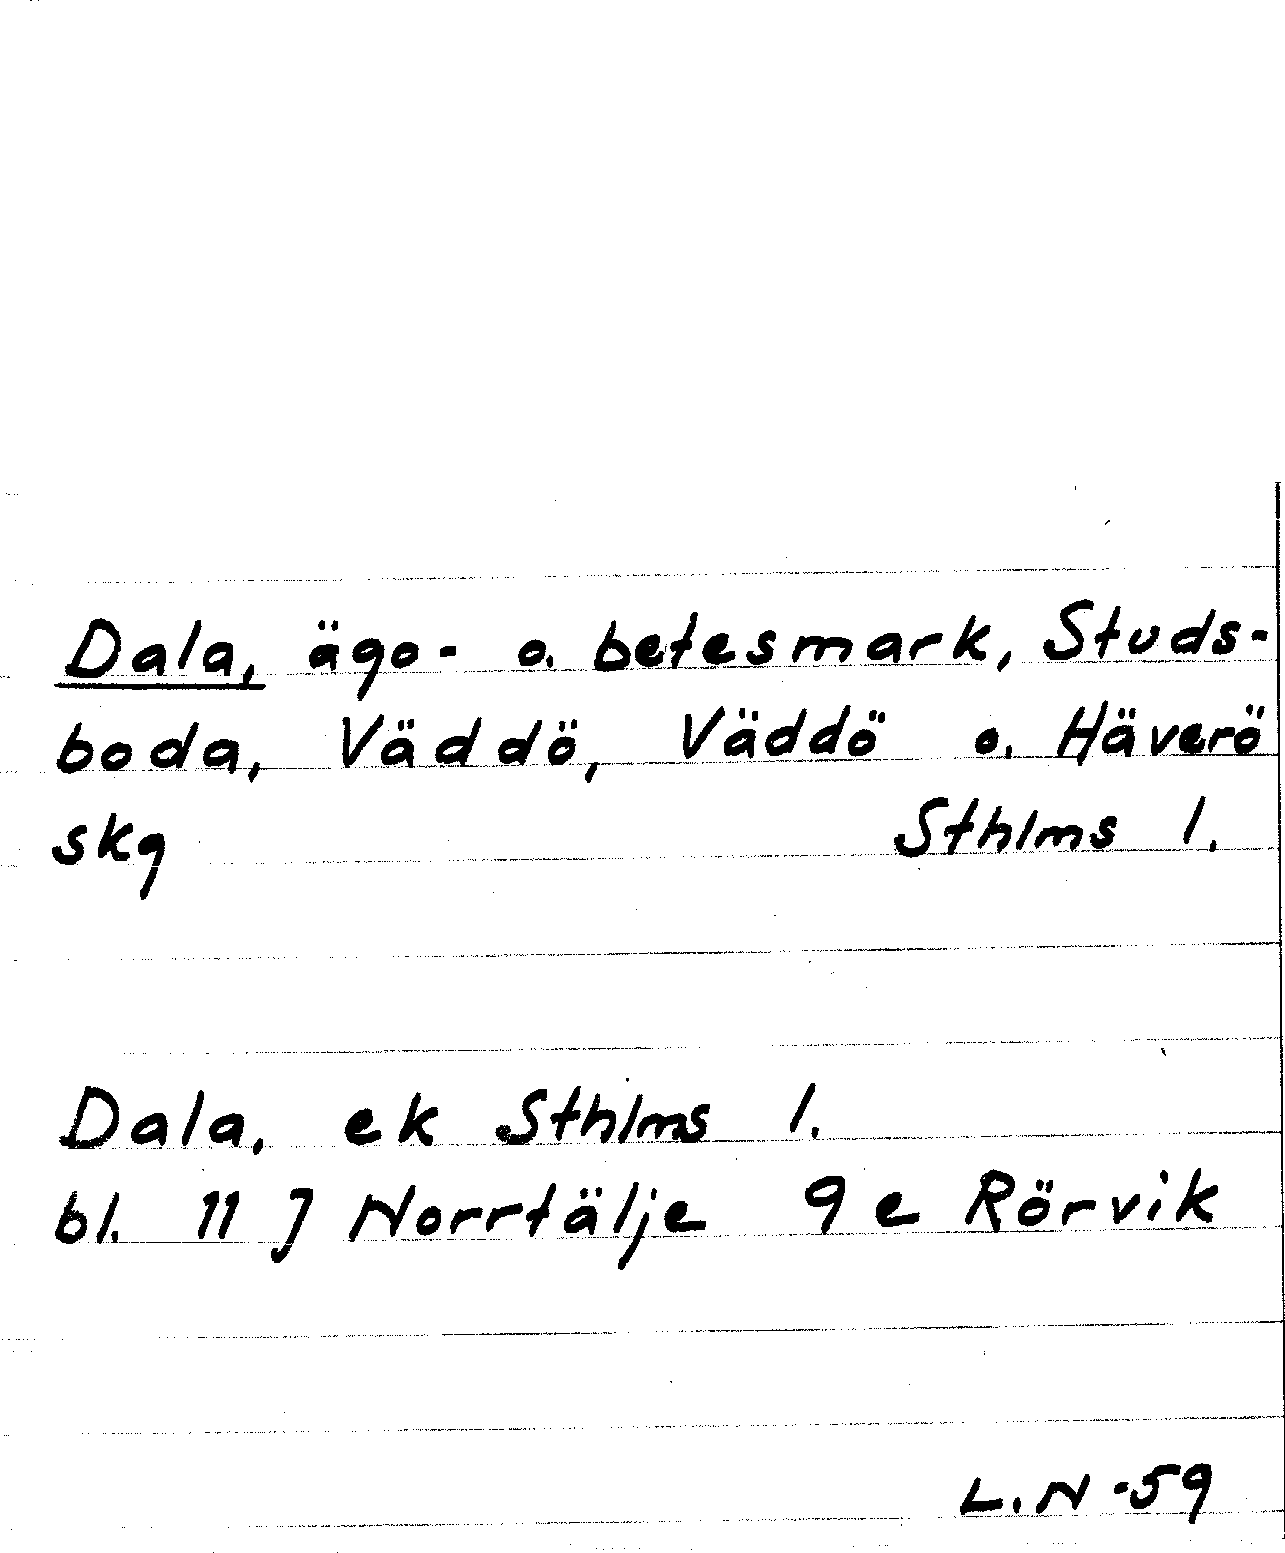 Dala, ägo- o. betesmark, Studs-
boda, Väddö, Väddö o. Häverö
skg Sthlms l.
Dala, ek Sthlms l.
bl. 11 J Norrtälje 9 e Rörvik
L.N -59